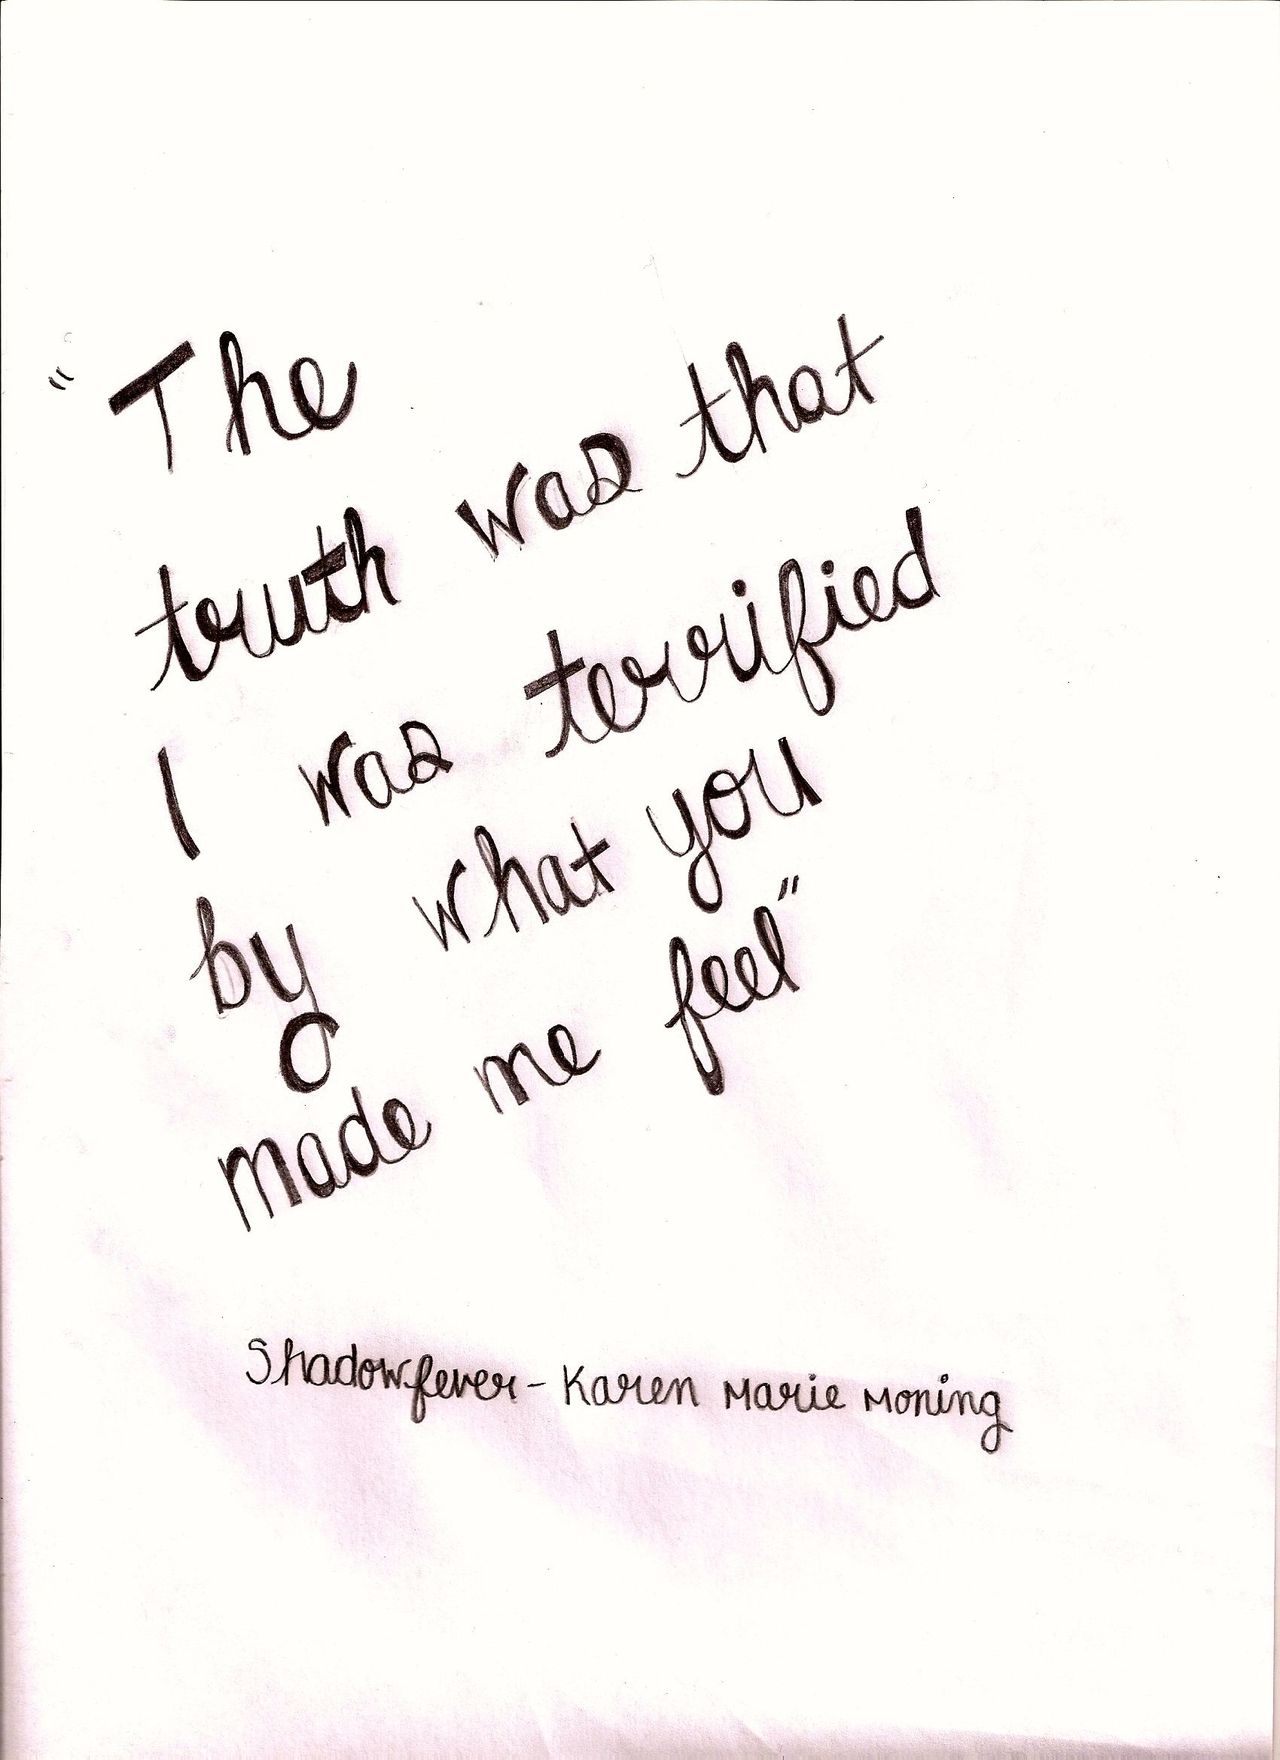 "The
truth was that
I was terrified
by what you
made me feel"
Shadowfever - Karen Marie Moning